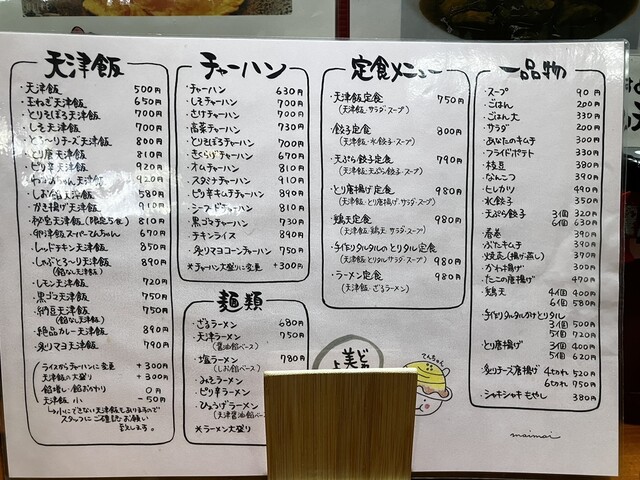 天津飯
・天津飯 500円
・玉ねぎ天津飯 650円
・とりそぼろ天津飯 700円
・しそ天津飯 700円
・とろ〜りチーズ天津飯 800円
・とり唐天津飯 810円
・ピリ辛天津飯 920円
920円
・しお餡天津飯 580円
・かき揚げ天津飯 910円
・秘宝天津飯(限定5食) 810円
・卵津飯スーパーてんちゃん 670円
・しっとりチキン天津飯 850円
・しゃぶとろ〜り天津飯 890円
(餡なし天津飯)
・レモン天津飯 720円
・黒ゴマ天津飯 750円
・納豆天津飯 750円
(餡なし天津飯)
・絶品カレー天津飯 890円
・炙りマヨ天津飯 790円
ライスからチャーハンに変更 +300円
天津飯の大盛り +300円
餡増し・餡おかわり 0円
天津飯 小 -50円
→小にできない天津飯もありますので
スタッフにご確認お願い
致します。
チャーハン
・チャーハン 630円
・しそチャーハン 700円
・さけチャーハン 700円
・高菜チャーハン 730円
・とりそぼろチャーハン 700円
・きくらげチャーハン 670円
・オムチャーハン 810円
・スタミナチャーハン 910円
・ピリ辛キムチチャーハン 890円
・シーフードチャーハン 810円
・黒ゴマチャーハン 730円
・チキンライス 890円
・炙りマヨコーンチャーハン 750円
*チャーハン大盛りに変更 +300円
麺類
・ざるラーメン 680円
・天津ラーメン 750円
(醤油餡ベース)
・塩ラーメン 780円
(しお餡ベース)
・みそラーメン
・ピリ辛ラーメン
・ひょうげラーメン
(天津醤油餡ベー
*ラーメン大盛り
定食メニュー
・天津飯定食 750円
(天津飯・サラダ・スープ)
・餃子定食 800円
(天津飯・水餃子・スープ)
・天ぷら餃子定食 790円
(天津飯・天ぷら餃子・スープ)
・とり唐揚げ定食 980円
(天津飯・とり唐揚げ・サラダ・スープ)
・鶏天定食 980円
(天津飯・鶏天・サラダ・スープ)
・手作りタルタルのとりタル定食 980円
(天津飯・とりタル・サラダ・スープ)
・ラーメン定食 980円
(天津飯・ざるラーメン)
てんちゃん
一品物
・スープ 90円
・ごはん 200円
・ごはん大 330円
・サラダ 200円
・あなたのキムチ 300円
・フライドポテト 330円
・枝豆 380円
・なんこつ 390円
・ヒレカツ 490円
・水餃子 350円
・天ぷら餃子 3個 320円
6個 630円
・春巻 390円
・ぶたキムチ 390円
・焼売(揚げor蒸し) 370円
・かわ揚げ 300円
・たこの唐揚げ 470円
・鶏天 4個 400円
6個 580円
・手作りタルタルかけとりタル
3個 500円
5個 720円
・とり唐揚げ 3個 400円
5個 620円
・炙りチーズ唐揚げ 4切れ 520円
6切れ 750円
・シャキシャキもやし 380円
maimai